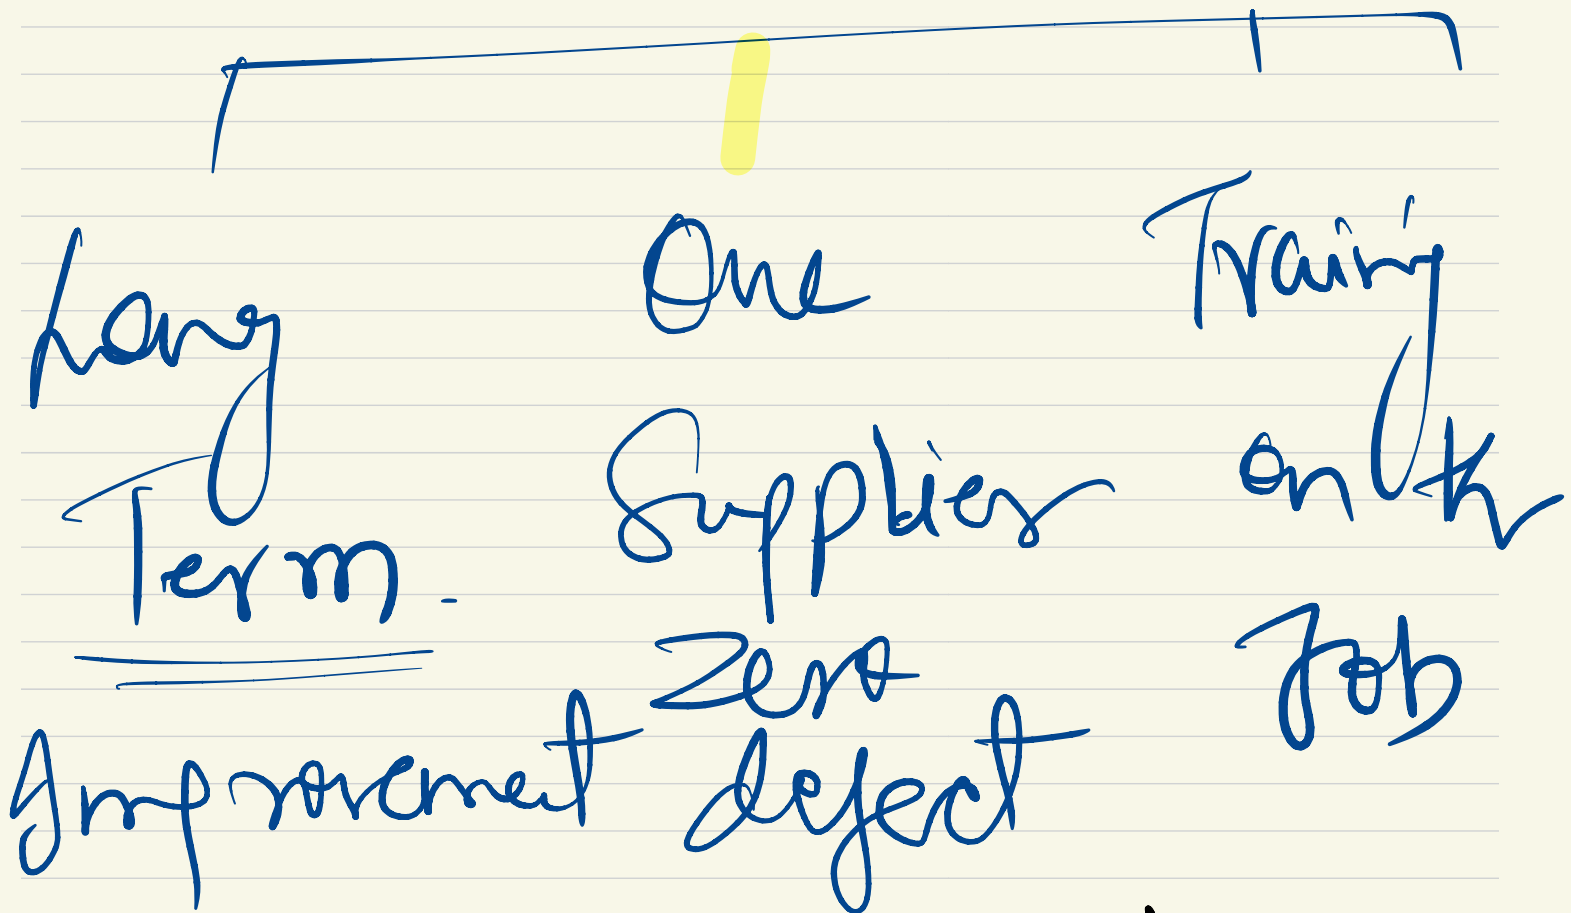 Long
Term
Improvement
One
Supplier
Zero
defect
Training
on
Job